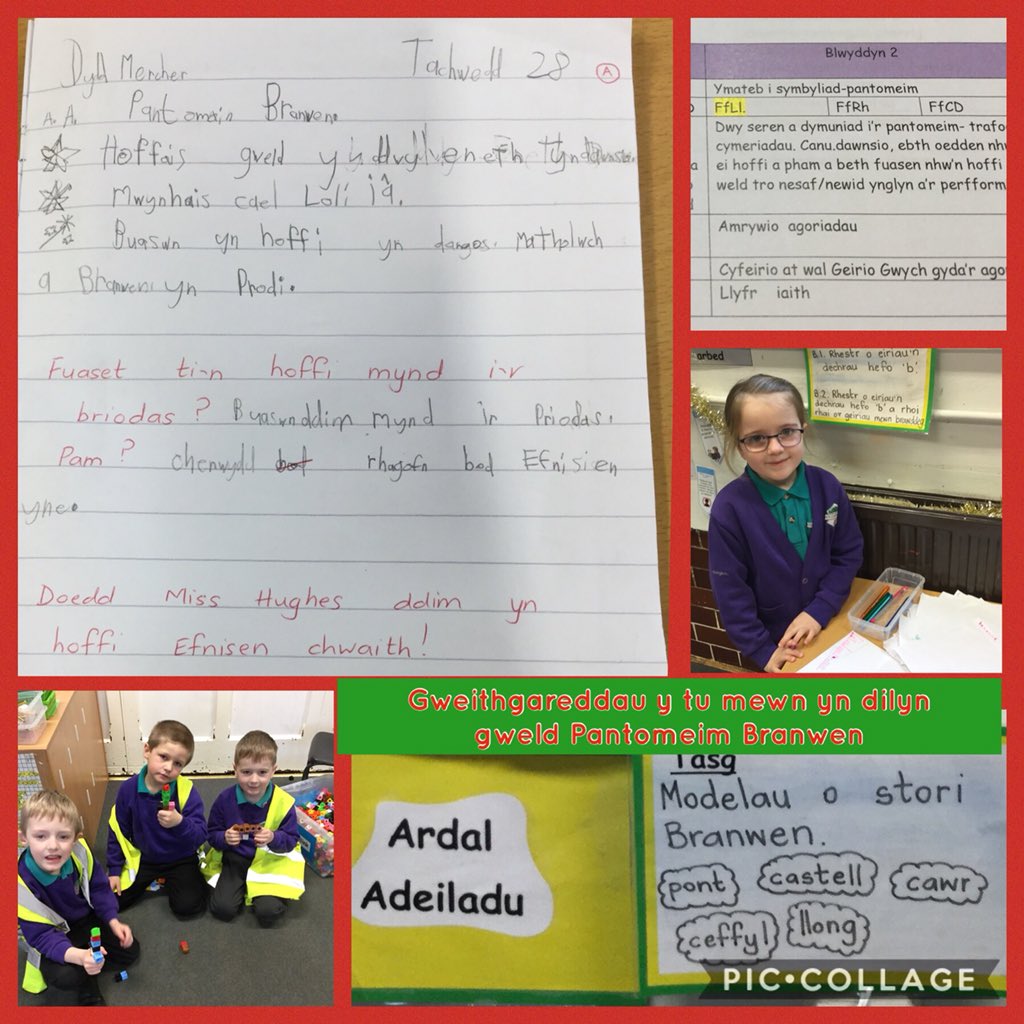 Dydd Mercher Tachwedd 28 A
A.A. Pantomein Branwen.
Hoffais gveld y
Mwynhais cael Loli iâ.
Buaswn yn hoffi yn dangos. Matholwch
a Branwen yn Prodi.
Fuaset ti-n hoffi mynd i-r
briodas? Buaswnddim mynd ir Priodas.
Pam? cherwydd rhagofn bod Efnisien
yne.
Doedd Miss Hughes ddim yn
hoffi Efnisen chwaith!
Blwyddyn 2
Ymateb i symbyliad-pantomeim
FfLl. FfRh FfCD
Dwy seren a dymuniad i'r pantomeim- trafo
cymeriadau. Canu.dawnsio, ebth oedden nh
ei hoffi a pham a beth fuasen nhw'n hoffi
weld tro nesaf/newid ynglyn a'r perfform
Amrywio agoriadau
Cyfeirio at wal Geirio Gwych gyda'r ago
Llyfr iaith
arbed
B.1. Rhestr o eiriau'n
dechrau hefo 'b'.
B.2. Rhestr o eiriau'n
dechrau hefo 'b' a rhoi
rhai or geiriau mewn brawddeg
Gweithgareddau y tu mewn yn dilyn
gweld Pantomeim Branwen
Ardal
Adeiladu
Tasg
Modelau o stori
Branwen.
pont castell cawr
ceffyl llong
PIC•COLLAGE